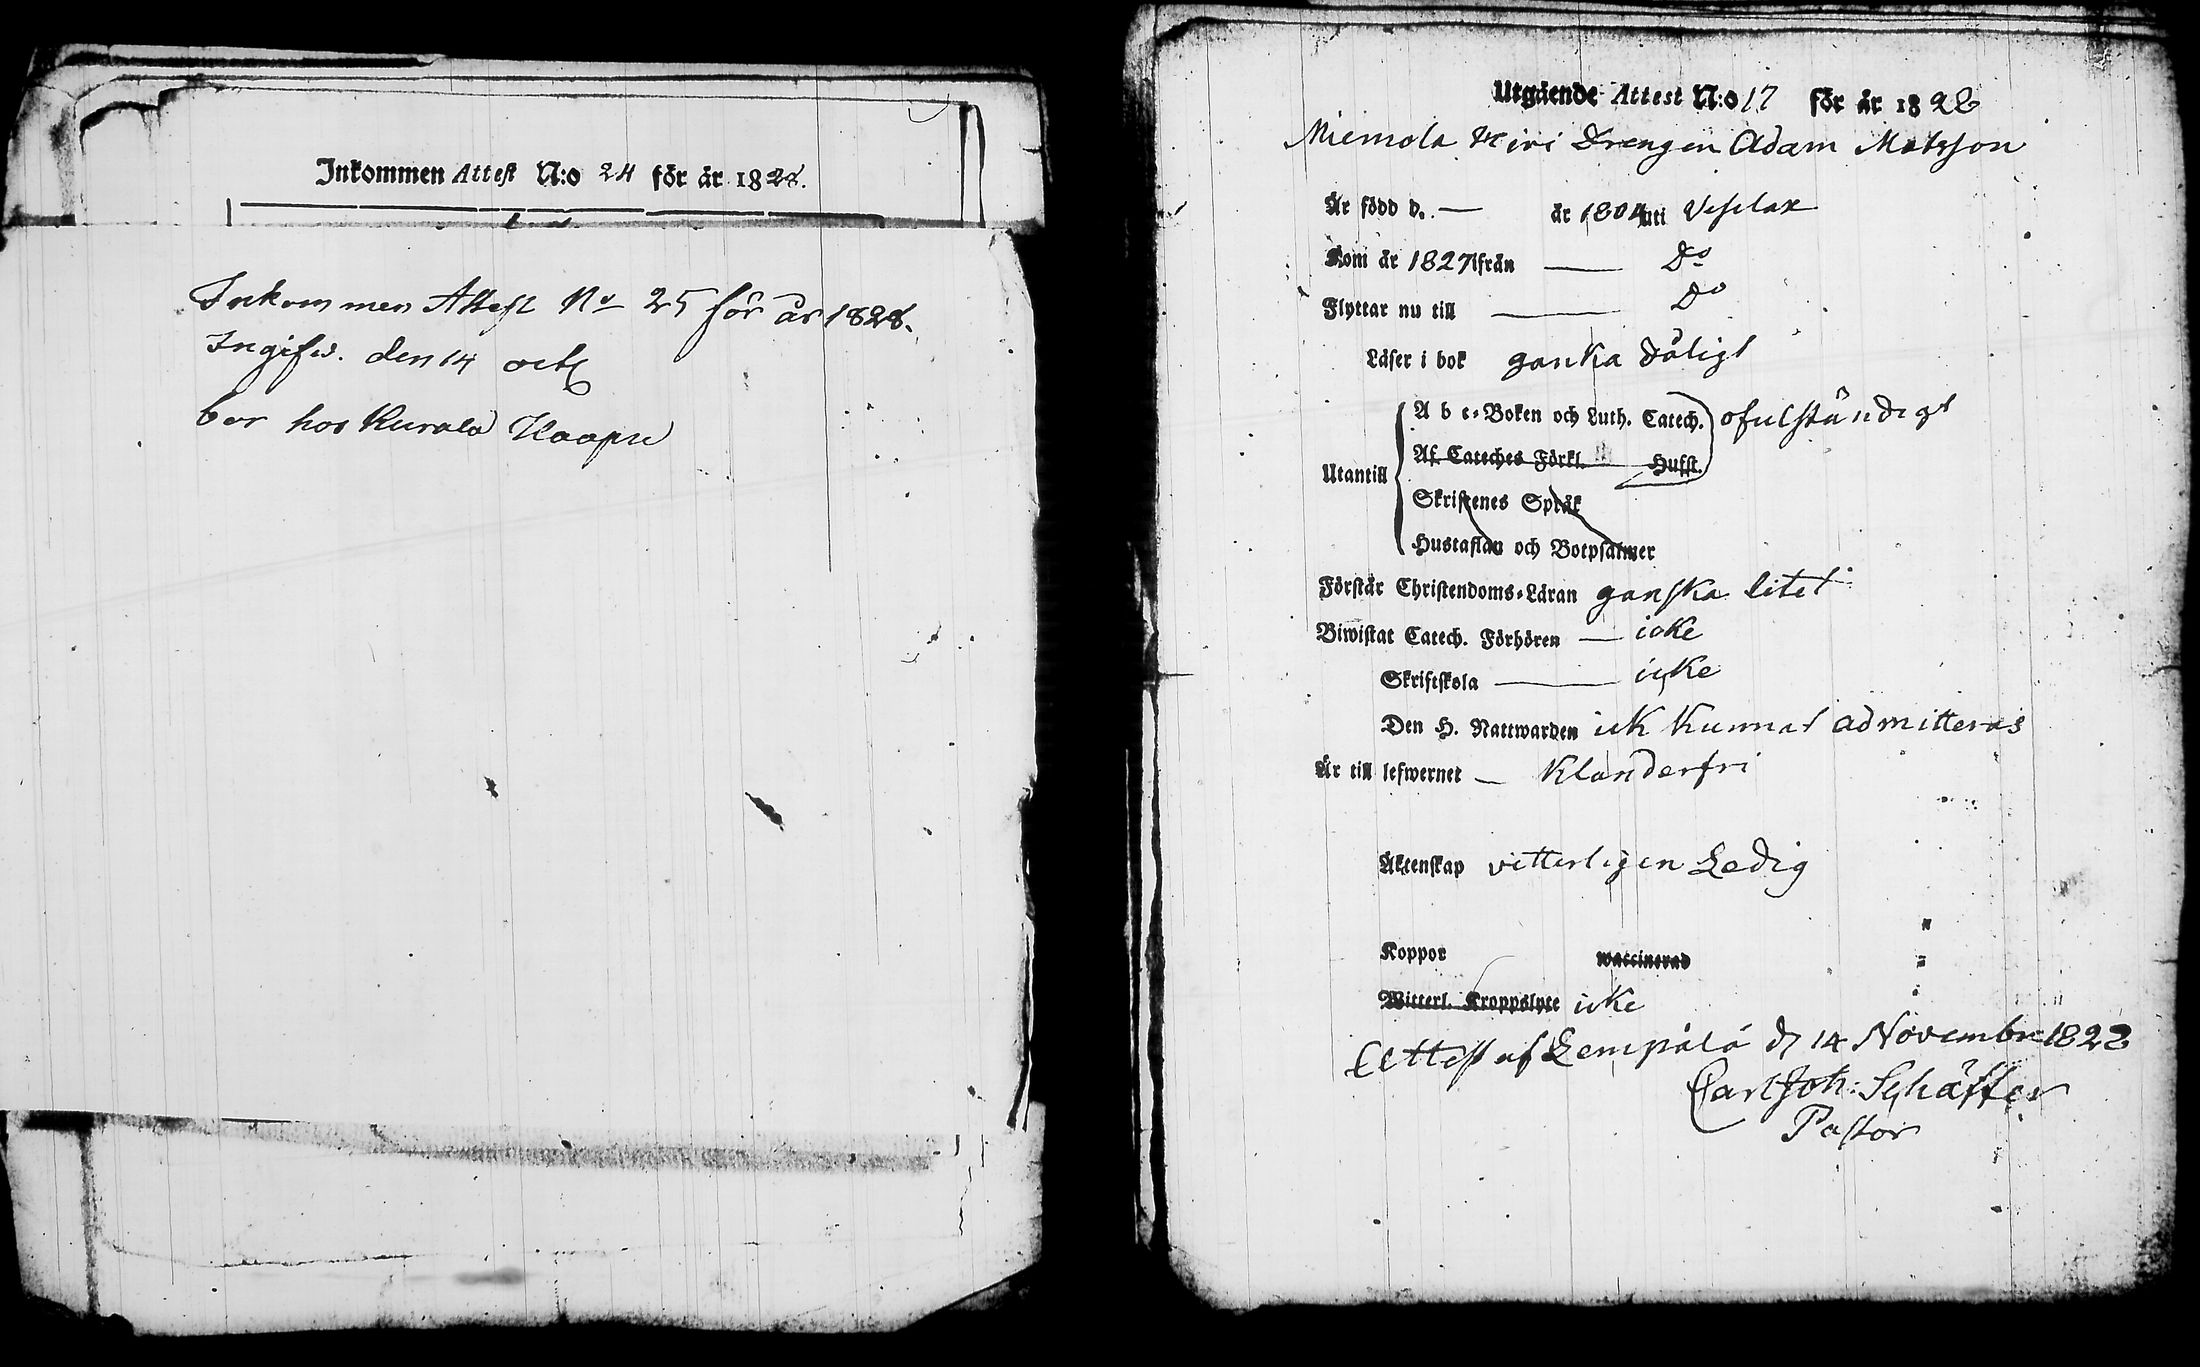 Inkommen Attest N:o 24 för år 1828.
Inkommen Attest No 25 för år 1828.
Ingifw. den 14 octb
bor hos Kurala Kaapu
Utgående Attest N:o 17 för år 1828
Miemola Kiri Drengen Adam Matsson
Är född d. — år 1804 uti Vesilax
Kom år 1827 ifrån — Do
Flyttar nu till — Do
Läser i bok ganka dåligt
Utantill
A b c-Boken och Luth. Catech. ofulständigt
Af. Cateches Förkl. Hufst.
Skriftenes Språk
Hustaflan och Botpsalmer
Förstår Christendoms-Läran ganska litet
Biwistat Catech. Förhören — icke
Skriftskola — icke
Den H. Nattwarden ick kunnat admitteras
Är till lefwernet — Klanderfri
Äktenskap vitterligen Ledig
Koppor waccinerad
Witterl. Kroppslyte icke
Attest af Lempälä d 14 Novembr 1828
Carl Joh: Schäffer
Pastor